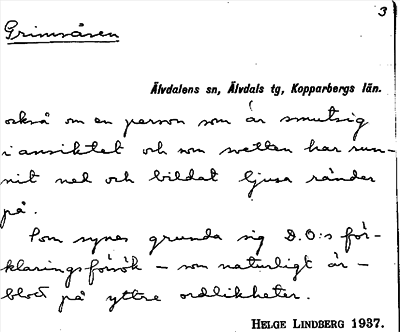 3
Grimsåren
Älvdalens sn, Älvdals tg, Kopparbergs län.
också om en person som är smutsig
i ansiktet och som svetten har run-
nit ned och bildat ljusa ränder
på.
Som synes grunda sig D.O:s för-
klaringsförsök – som naturligt är –
blott på yttre ordlikheter.
HELGE LINDBERG 1937.